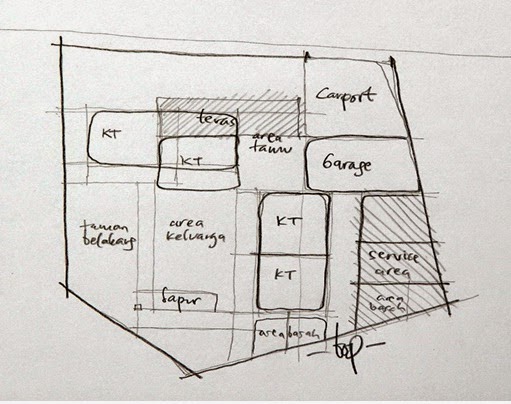 Carport
teras
KT
area
tamu
KT
Garage
KT
taman
belakang
area
keluarga
service
area
KT
dapur
area
basah
area basah
-top-